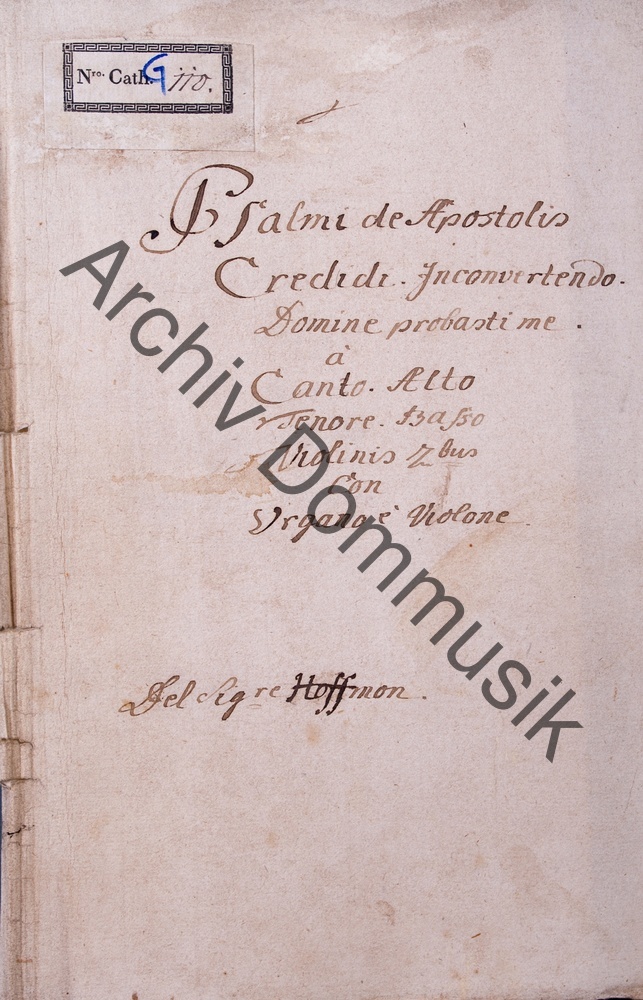 Nro. Cath. G 110.
Psalmi de Apostolis
Credidi. Inconvertendo.
Domine probasti me.
à
Canto. Alto
Tenore. Basso
Violinis 2bus
Con
Organo è Violone.
Del Sigre Hoffmon.
Archiv Dommusik